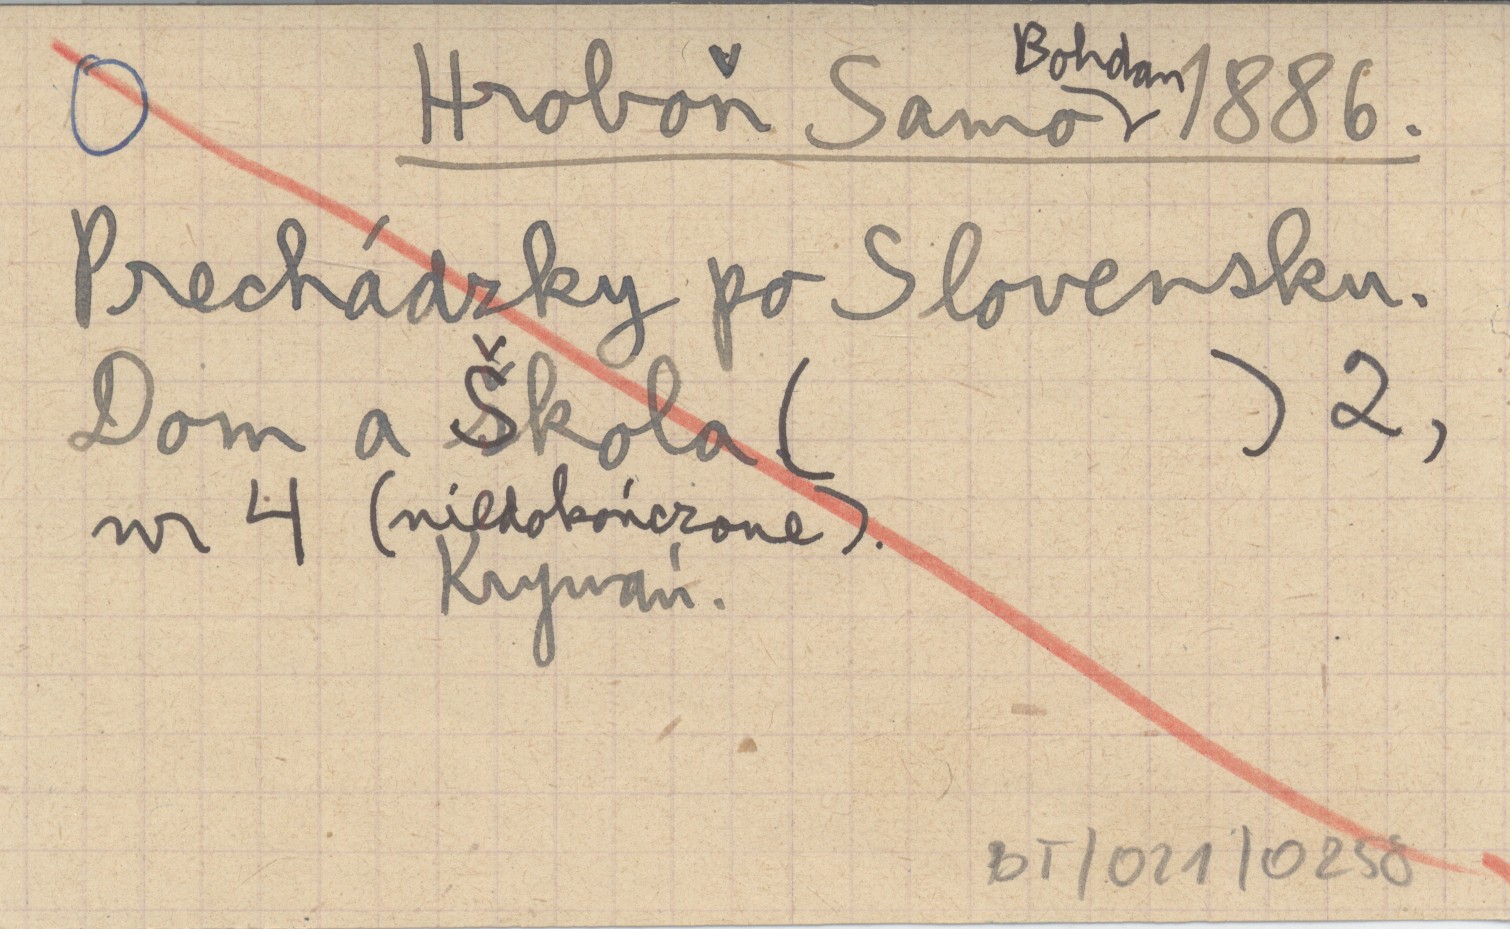 Hroboň Samo Bohdan 1886.
Prechádzky po Slovensku.
Dom a Škola ( ) 2,
nr 4 (niedokończone).
Krywań.
BT/021/0258